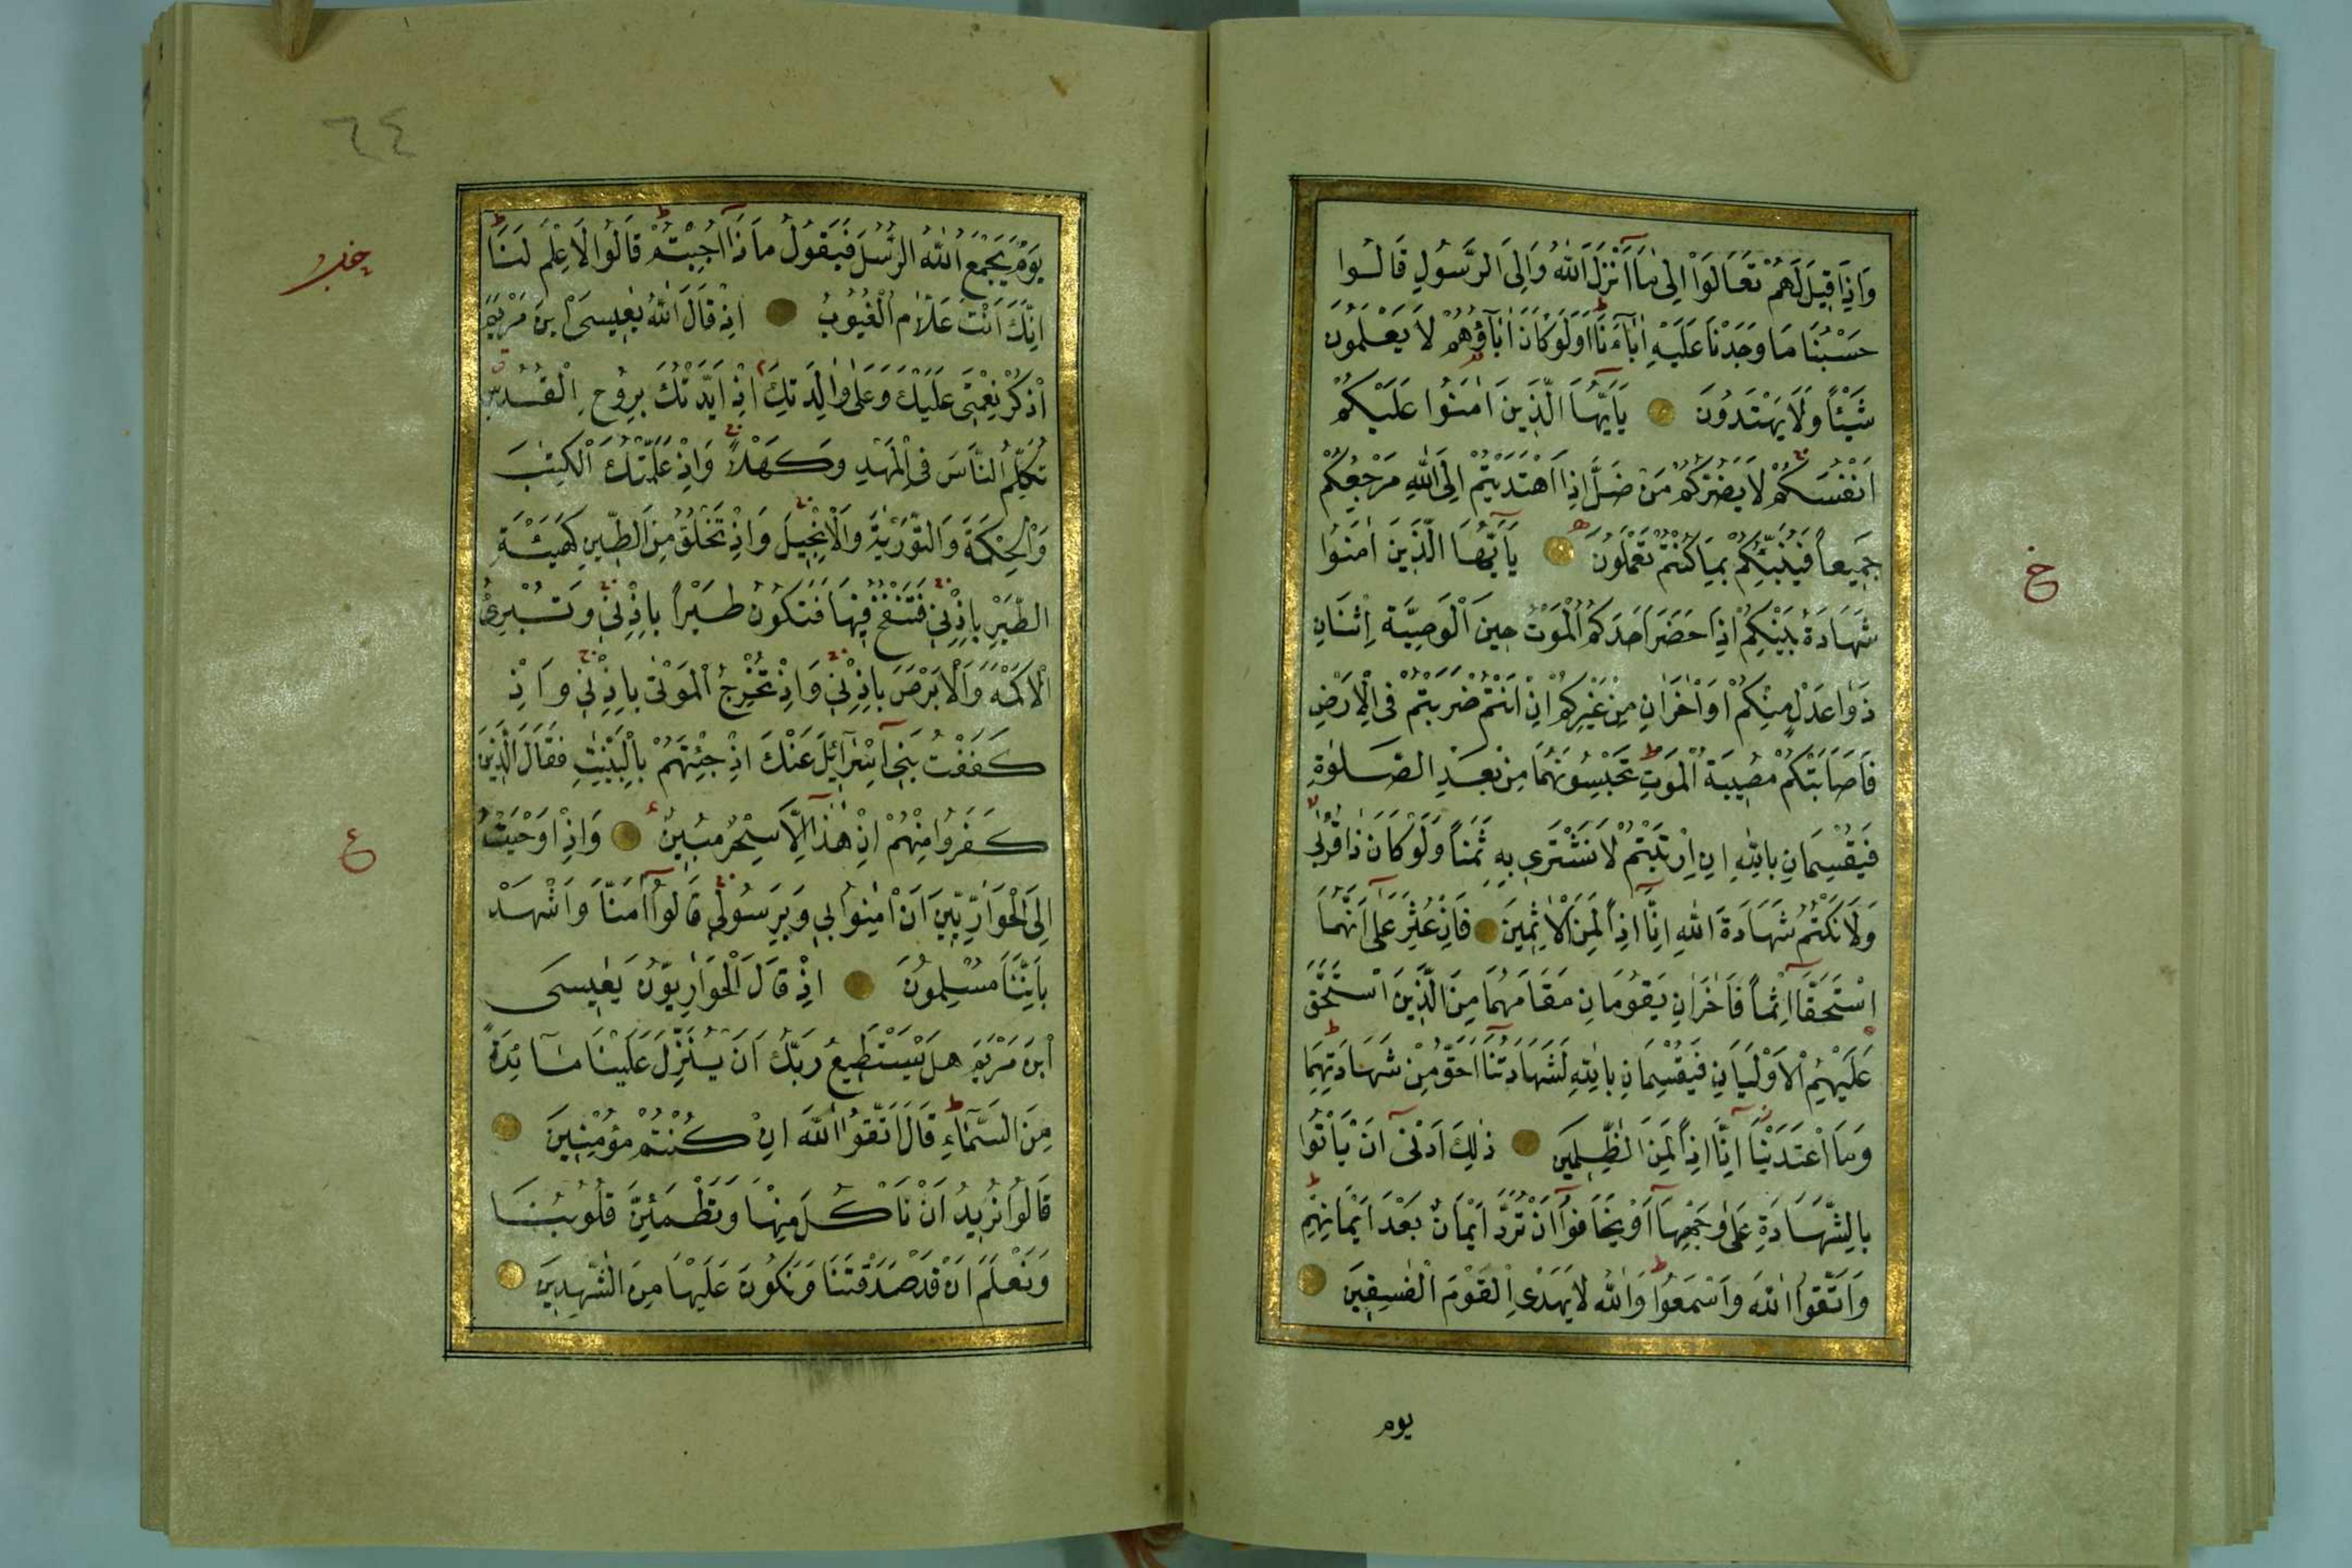 وَاِذَا قِيلَ لَهُمْ تَعَالَوْا اِلٰى مَٓا اَنْزَلَ اللّٰهُ وَاِلَى الرَّسُولِ قَالُوا
حَسْبُنَا مَا وَجَدْنَا عَلَيْهِ اٰبَٓاءَنَا اَوَلَوْ كَانَ اٰبَٓاؤُهُمْ لَا يَعْلَمُونَ
شَيْـًٔا وَلَا يَهْتَدُونَ يَٓا اَيُّهَا الَّذِينَ اٰمَنُوا عَلَيْكُمْ
اَنْفُسَكُمْ لَا يَضُرُّكُمْ مَنْ ضَلَّ اِذَا اهْتَدَيْتُمْ اِلَى اللّٰهِ مَرْجِعُكُمْ
جَمِيعًا فَيُنَبِّئُكُمْ بِمَا كُنْتُمْ تَعْمَلُونَ يَٓا اَيُّهَا الَّذِينَ اٰمَنُوا
خ
شَهَادَةُ بَيْنِكُمْ اِذَا حَضَرَ اَحَدَكُمُ الْمَوْتُ حِينَ الْوَصِيَّةِ اثْنَانِ
ذَوَا عَدْلٍ مِنْكُمْ اَوْ اٰخَرَانِ مِنْ غَيْرِكُمْ اِنْ اَنْتُمْ ضَرَبْتُمْ فِى الْاَرْضِ
فَاَصَابَتْكُمْ مُصِيبَةُ الْمَوْتِ تَحْبِسُونَهُمَا مِنْ بَعْدِ الصَّلٰوةِ
فَيُقْسِمَانِ بِاللّٰهِ اِنِ ارْتَبْتُمْ لَا نَشْتَرِى بِهِ ثَمَنًا وَلَوْ كَانَ ذَا قُرْبٰى
وَلَا نَكْتُمُ شَهَادَةَ اللّٰهِ اِنَّٓا اِذًا لَمِنَ الْاٰثِمِينَ فَاِنْ عُثِرَ عَلٰٓى اَنَّهُمَا
اسْتَحَقَّٓا اِثْمًا فَاٰخَرَانِ يَقُومَانِ مَقَامَهُمَا مِنَ الَّذِينَ اسْتَحَقَّ
عَلَيْهِمُ الْاَوْلَيَانِ فَيُقْسِمَانِ بِاللّٰهِ لَشَهَادَتُنَٓا اَحَقُّ مِنْ شَهَادَتِهِمَا
وَمَا اعْتَدَيْنَٓا اِنَّٓا اِذًا لَمِنَ الظّٰلِمِينَ ذٰلِكَ اَدْنٰٓى اَنْ يَأْتُوا
بِالشَّهَادَةِ عَلٰى وَجْهِهَٓا اَوْ يَخَافُٓوا اَنْ تُرَدَّ اَيْمَانٌ بَعْدَ اَيْمَانِهِمْ
وَاتَّقُوا اللّٰهَ وَاسْمَعُوا وَاللّٰهُ لَا يَهْدِى الْقَوْمَ الْفٰسِقِينَ
يوم
٦٤
يَوْمَ يَجْمَعُ اللّٰهُ الرُّسُلَ فَيَقُولُ مَاذَٓا اُجِبْتُمْ قَالُوا لَا عِلْمَ لَنَا
اِنَّكَ اَنْتَ عَلَّامُ الْغُيُوبِ اِذْ قَالَ اللّٰهُ يٰعِيسَى ابْنَ مَرْيَمَ
اذْكُرْ نِعْمَتِى عَلَيْكَ وَعَلٰى وٰلِدَتِكَ اِذْ اَيَّدْتُكَ بِرُوحِ الْقُدُسِ
تُكَلِّمُ النَّاسَ فِى الْمَهْدِ وَكَهْلًا وَاِذْ عَلَّمْتُكَ الْكِتٰبَ
وَالْحِكْمَةَ وَالتَّوْرٰيةَ وَالْاِنْجِيلَ وَاِذْ تَخْلُقُ مِنَ الطِّينِ كَهَيْـَٔةِ
الطَّيْرِ بِاِذْنِى فَتَنْفُخُ فِيهَا فَتَكُونُ طَيْرًا بِاِذْنِى وَتُبْرِئُ
الْاَكْمَهَ وَالْاَبْرَصَ بِاِذْنِى وَاِذْ تُخْرِجُ الْمَوْتٰى بِاِذْنِى وَاِذْ
كَفَفْتُ بَنِٓى اِسْرَٓائِلَ عَنْكَ اِذْ جِئْتَهُمْ بِالْبَيِّنٰتِ فَقَالَ الَّذِينَ
كَفَرُوا مِنْهُمْ اِنْ هٰذَٓا اِلَّا سِحْرٌ مُبِينٌ وَاِذْ اَوْحَيْتُ
ع
اِلَى الْحَوَارِيِّينَ اَنْ اٰمِنُوا بِى وَبِرَسُولِى قَالُٓوا اٰمَنَّا وَاشْهَدْ
بِاَنَّنَا مُسْلِمُونَ اِذْ قَالَ الْحَوَارِيُّونَ يٰعِيسَى
ابْنَ مَرْيَمَ هَلْ يَسْتَطِيعُ رَبُّكَ اَنْ يُنَزِّلَ عَلَيْنَا مَٓائِدَةً
مِنَ السَّمَٓاءِ قَالَ اتَّقُوا اللّٰهَ اِنْ كُنْتُمْ مُؤْمِنِينَ
قَالُوا نُرِيدُ اَنْ نَأْكُلَ مِنْهَا وَتَطْمَئِنَّ قُلُوبُنَا
وَنَعْلَمَ اَنْ قَدْ صَدَقْتَنَا وَنَكُونَ عَلَيْهَا مِنَ الشّٰهِدِينَ